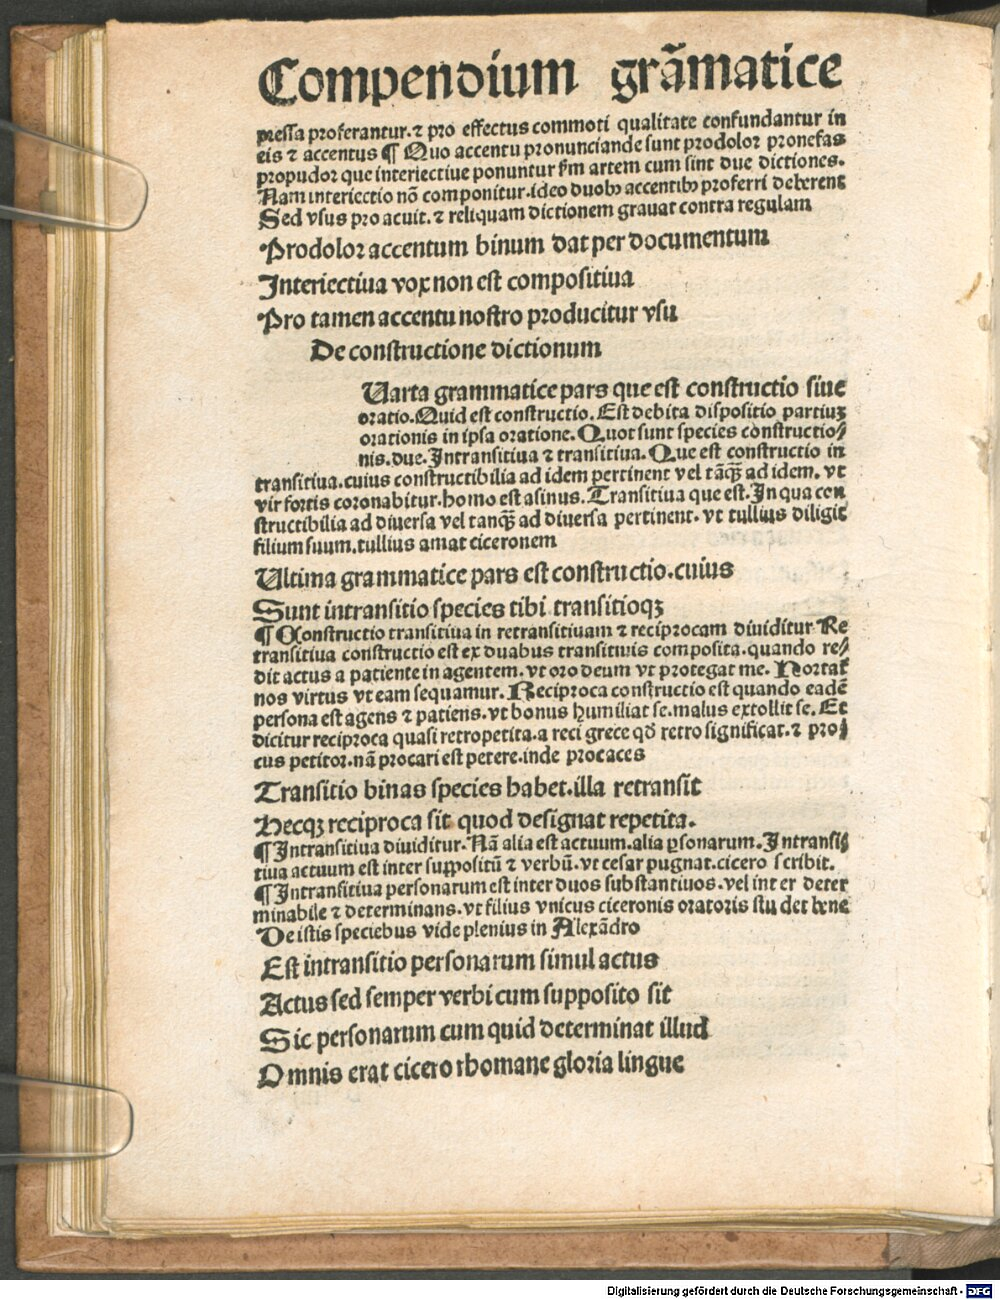 Compendium grãmatice
pressa proferantur. ⁊ pro effectus commoti qualitate confundantur in
eis ⁊ accentus ¶ Quo accentu pronunciande sunt prodolor pronefas
propudor que interiectiue ponuntur fm artem cum sint due dictiones.
Nam interiectio nõ componitur. ideo duobꝫ accentibꝫ proferri deberent
Sed vsus pro acuit. ⁊ reliquam dictionem grauat contra regulam
Prodolor accentum binum dat per documentum
Interiectiua vox non est compositiua
Pro tamen accentu nostro producitur vsu
De constructione dictionum
Uarta grammatice pars que est constructio siue
oratio. Quid est constructio. Est debita dispositio partiuꝫ
orationis in ipsa oratione. Quot sunt species constructio⸗
nis. due. Intransitiua ⁊ transitiua. Que est constructio in
transitiua. cuius constructibilia ad idem pertinent vel tãꝙ̃ ad idem. vt
vir fortis coronabitur. homo est asinus. Transitiua que est. In qua con
structibilia ad diuersa vel tanꝙ̃ ad diuersa pertinent. vt tullius diligit
filium suum. tullius amat ciceronem
Ultima grammatice pars est constructio. cuius
Sunt intransitio species tibi transitioqꝫ
¶ Constructio transitiua in retransitiuam ⁊ reciprocam diuiditur Re
transitiua constructio est ex duabus transitiuis composita. quando re⸗
dit actus a patiente in agentem. vt oro deum vt protegat me. Hortat᷑
nos virtus vt eam sequamur. Reciproca constructio est quando eadẽ
persona est agens ⁊ patiens. vt bonus humiliat se. malus extollit se. Et
dicitur reciproca quasi retropetita. a reci grece qđ retro significat. ⁊ pro⸗
cus petitor. nã procari est petere. inde procaces
Transitio binas species habet. illa retransit
Hecqꝫ reciproca sit quod designat repetita.
¶ Intransitiua diuiditur. Nã alia est actuum. alia ꝑsonarum. Intransi⸗
tiua actuum est inter suppositũ ⁊ verbũ. vt cesar pugnat. cicero scribit.
¶ Intransitiua personarum est inter duos substantiuos. vel inter deter
minabile ⁊ determinans. vt filius vnicus ciceronis oratoris studet bene
De istis speciebus vide plenius in Alexãdro
Est intransitio personarum simul actus
Actus sed semper verbi cum supposito sit
Sic personarum cum quid determinat illud
Omnis erat cicero rhomane gloria lingue
Digitalisierung gefördert durch die Deutsche Forschungsgemeinschaft - DFG